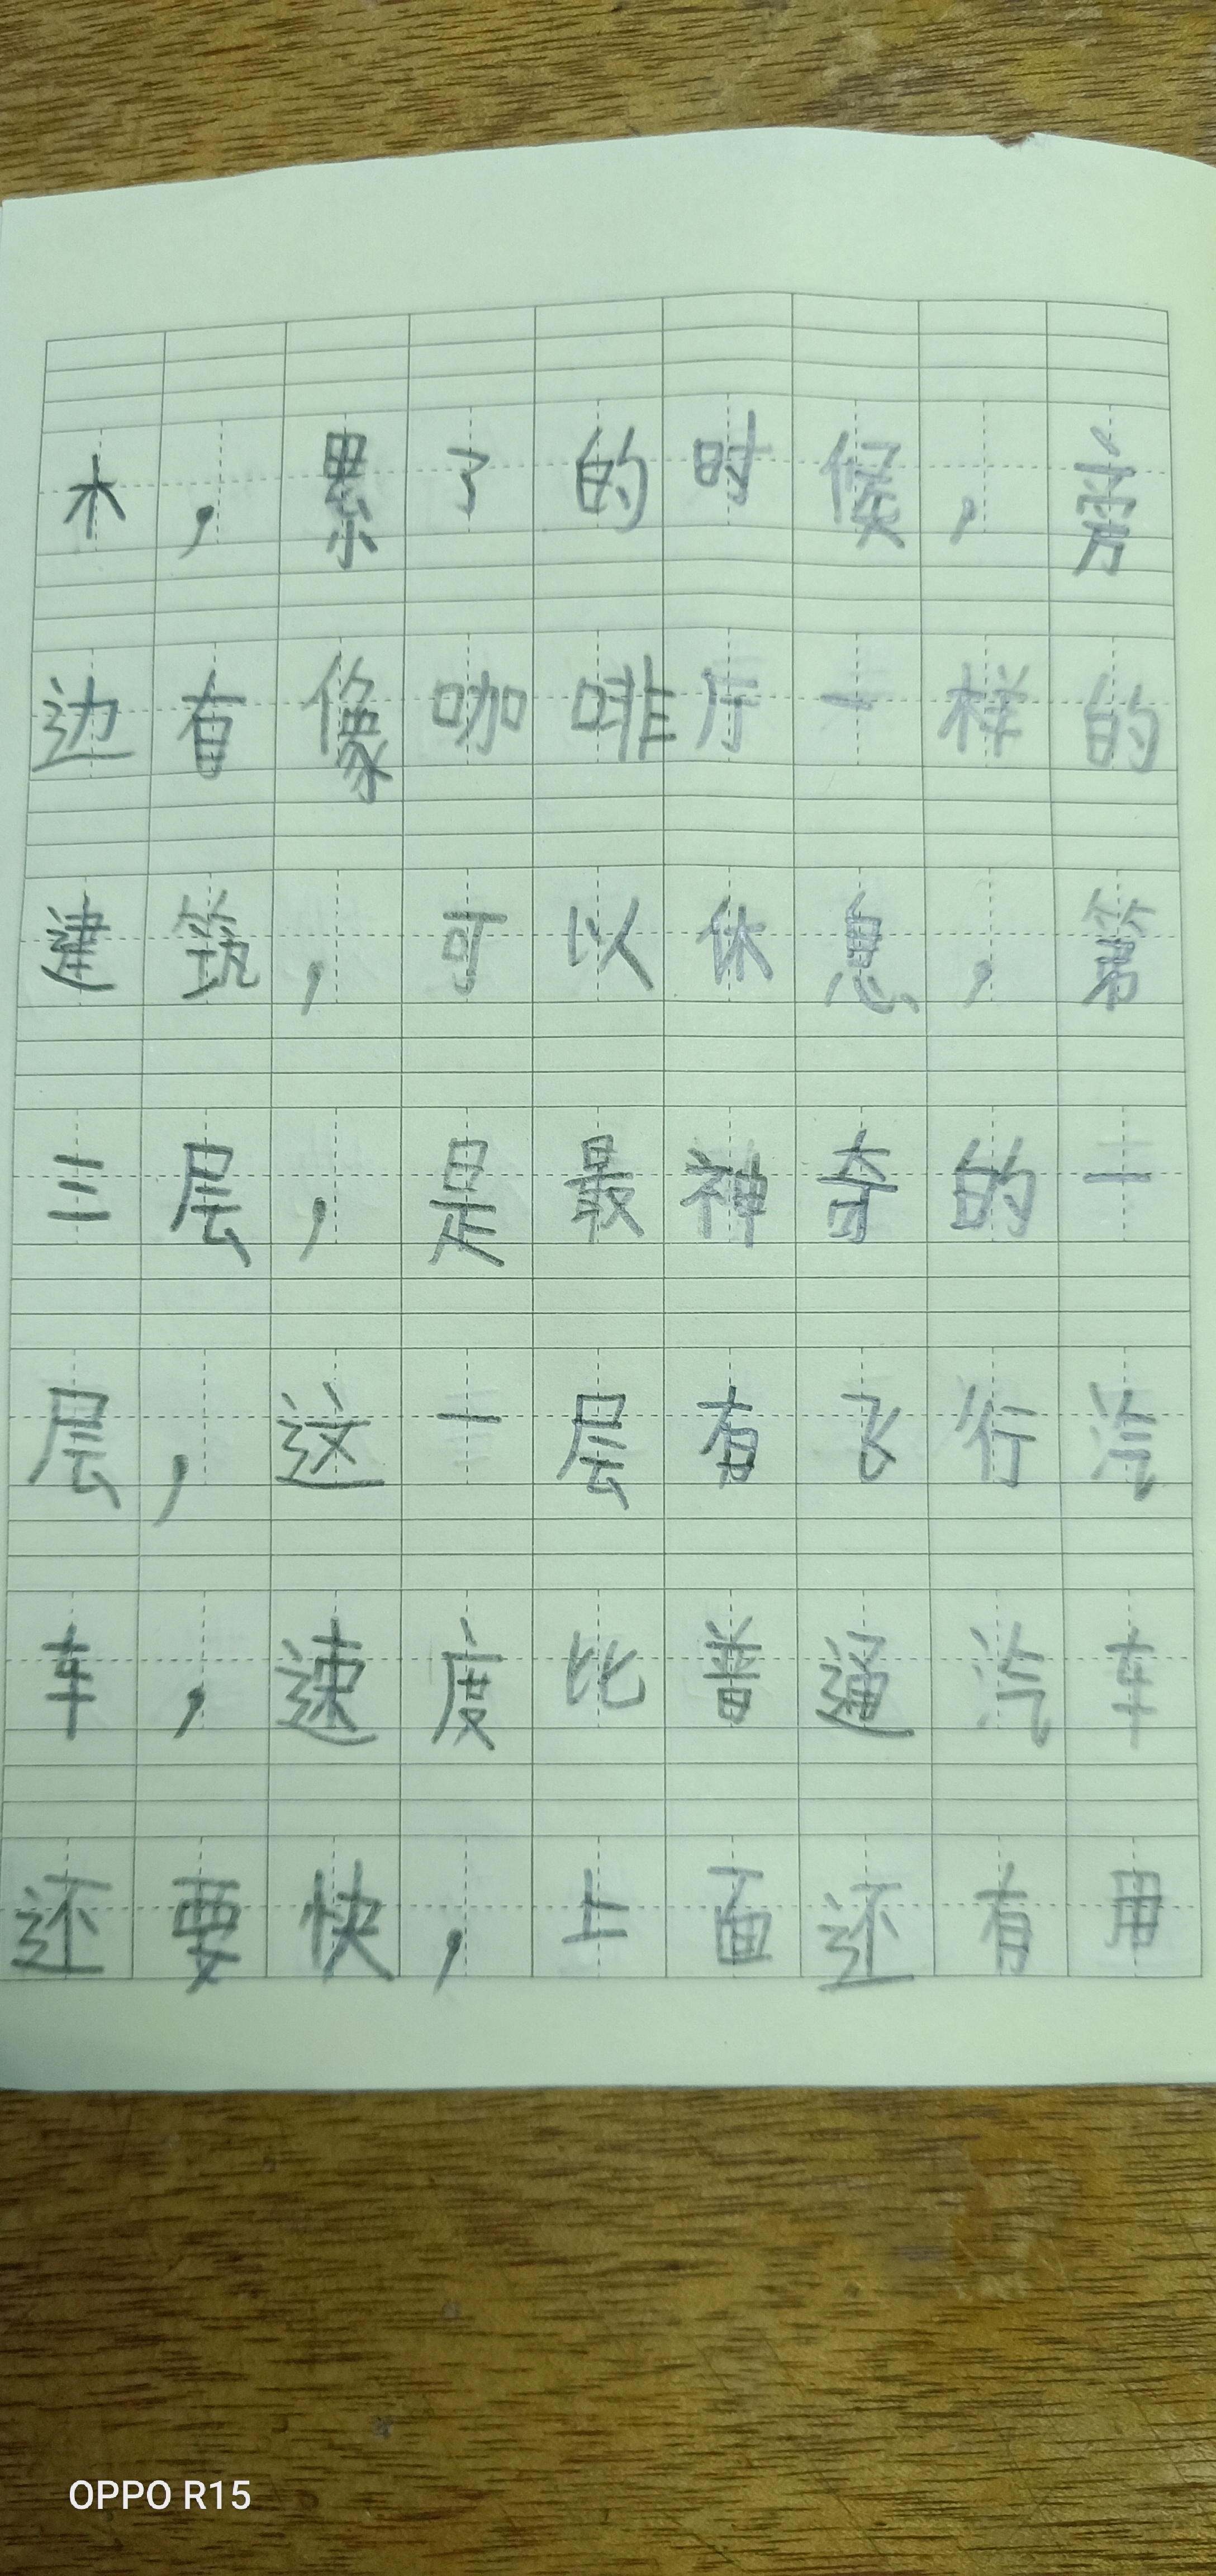 木，累了的时候，旁
边有像咖啡厅一样的
建筑，可以休息，第
三层，是最神奇的一
层，这一层有飞行汽
车，速度比普通汽车
还要快，上面还有用
OPPO R15